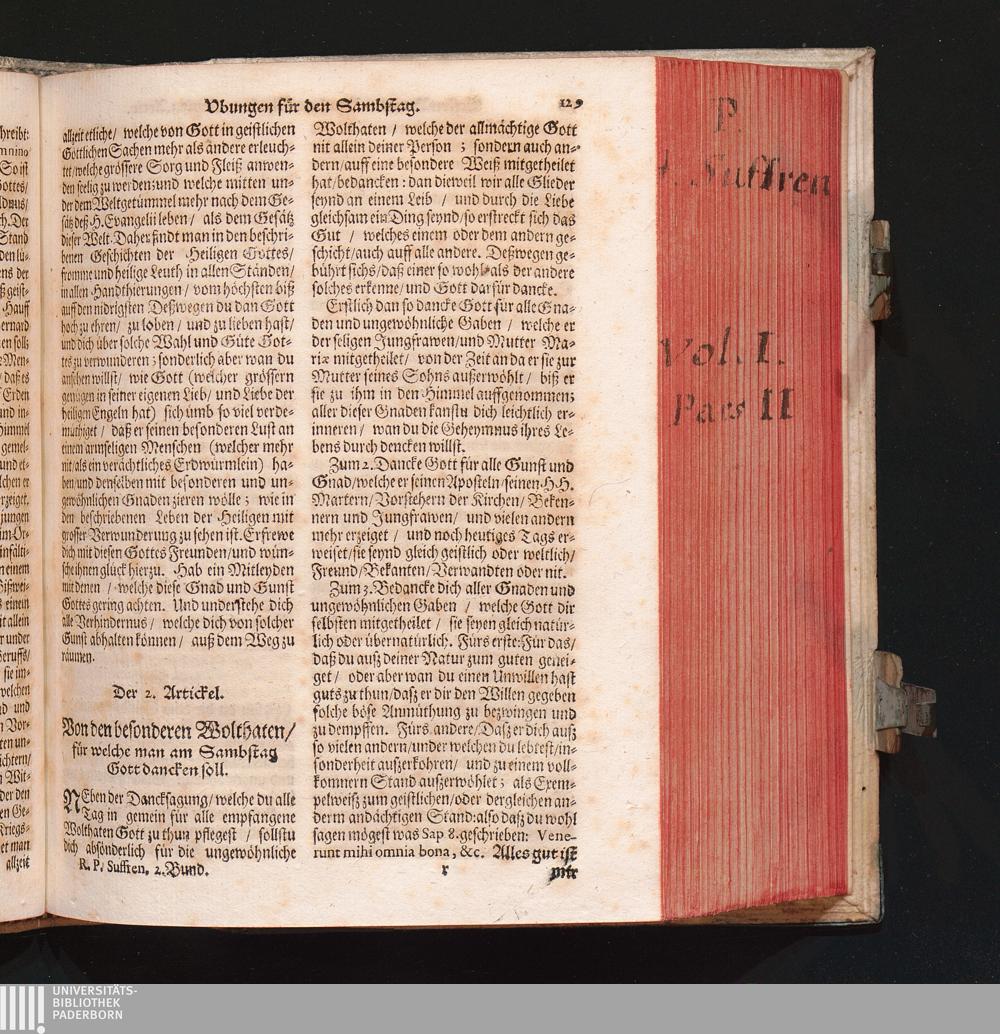 Vbungen für den Sambstag. 129
allzeit etliche/ welche von Gott in geistlichen
Göttlichen Sachen mehr als andere erleuch-
tet/welche grössere Sorg und Fleiß anwen-
den seelig zu werden: und welche mitten un-
der dem Weltgetümmel mehr nach dem Ge-
sätz deß H. Evangelii leben/ als dem Gesätz
dieser Welt. Daher findt man in den beschri-
benen Geschichten der Heiligen Gottes/
fromme und heilige Leuth in allen Ständen/
in allen Handthierungen/ vom höchsten biß
auff den nidrigsten. Deßwegen du dan Gott
hoch zu ehren/ zu loben/ und zu lieben hast/
und dich über solche Wahl und Güte Got-
tes zu verwunderen; sonderlich aber wan du
ansehen willst/ wie Gott (welcher grössern
genügen in seiner eigenen Lieb/ und Liebe der
heiligen Engeln hat) sich umb so viel verde-
müthiget/ daß er seinen besonderen Lust an
einem armseligen Menschen (welcher mehr
nit/als ein verächtliches Erdwürmlein) ha-
ben/und denselben mit besonderen und un-
gewöhnlichen Gnaden zieren wölle; wie in
den beschriebenen Leben der Heiligen mit
grosser Verwunderung zu sehen ist. Erfrewe
dich mit diesen Gottes Freunden/und wün-
sche ihnen glück hierzu. Hab ein Mitleyden
mit denen/ welche diese Gnad und Gunst
Gottes gering achten. Und understehe dich
alle Verhindernus/ welche dich von solcher
Gunst abhalten können/ auß dem Weg zu
räumen.
Der 2. Artickel.
Von den besonderen Wolthaten/
für welche man am Sambstag
Gott dancken soll.
NEben der Dancksagung/ welche du alle
Tag in gemein für alle empfangene
Wolthaten Gott zu thun pflegest/ sollstu
dich absönderlich für die ungewöhnliche
R. P. Suffren. 2. Bund.
Wolthaten/ welche der allmächtige Gott
nit allein deiner Person; sondern auch an-
dern/auff eine besondere Weiß mitgetheilet
hat/bedancken: dan dieweil wir alle Glieder
seynd an einem Leib/ und durch die Liebe
gleichsam ein Ding seynd/so erstreckt sich das
Gut/ welches einem oder dem andern ge-
schicht/auch auff alle andere. Deßwegen ge-
bührt sichs/daß einer so wohl als der andere
solches erkenne/und Gott darfür dancke.
Erstlich dan so dancke Gott für alle Gna-
den und ungewöhnliche Gaben/ welche er
der seligen Jungfrawen/und Mutter Ma-
riæ mitgetheilet/ von der Zeit an da er sie zur
Mutter seines Sohns außerwöhlt/ biß er
sie zu ihm in den Himmel auffgenommen;
aller dieser Gnaden kanstu dich leichtlich er-
inneren/ wan du die Geheymnus ihres Le-
bens durch dencken willst.
Zum 2. Dancke Gott für alle Gunst und
Gnad/welche er seinen Aposteln/seinen H.H.
Martern/Vorstehern der Kirchen/Beken-
nern und Jungfrawen/ und vielen andern
mehr erzeiget/ und noch heutiges Tags er-
weiset/sie seynd gleich geistlich oder weltlich/
Freund/Bekanten/Verwandten oder nit.
Zum 3. Bedancke dich aller Gnaden und
ungewöhnlichen Gaben/ welche Gott dir
selbsten mitgetheilet/ sie seyen gleich natür-
lich oder übernatürlich. Fürs erste: Für das/
daß du auß deiner Natur zum guten genei-
get/ oder aber wan du einen Unwillen hast
guts zu thun/daß er dir den Willen gegeben
solche böse Anmüthung zu bezwingen und
zu dempffen. Fürs andere/Daß er dich auß
so vielen andern/under welchen du lebtest/in-
sonderheit außerkohren/ und zu einem voll-
kommern Stand außerwöhlet; als Exem-
pelweiß zum geistlichen/oder dergleichen an-
derm andächtigen Stand: also daß du wohl
sagen mögest was Sap 8. geschrieben: Vene-
runt mihi omnia bona, &c. Alles gut ist
r mir
P.
Suffren
Vol. I.
Pars II
hreibt:
mnino
So ist
Gottes/
ch. Der
Stand
den lü-
ens der
ß geist-
Hauff
ernard
en soll;
Men-
daß es
Erden
und in-
Himmel
gemel-
und et-
lchen er
rzeiget.
jungen
im Or-
infälti-
n einem
Bißwei-
s einem
it allein
r under
Beruffs/
sie im-
welchen
d und
n Vor-
ten un-
ichtern/
n Wit-
der den
en Ge-
Kriegs-
et man
allzeit
UNIVERSITÄTS-
BIBLIOTHEK
PADERBORN